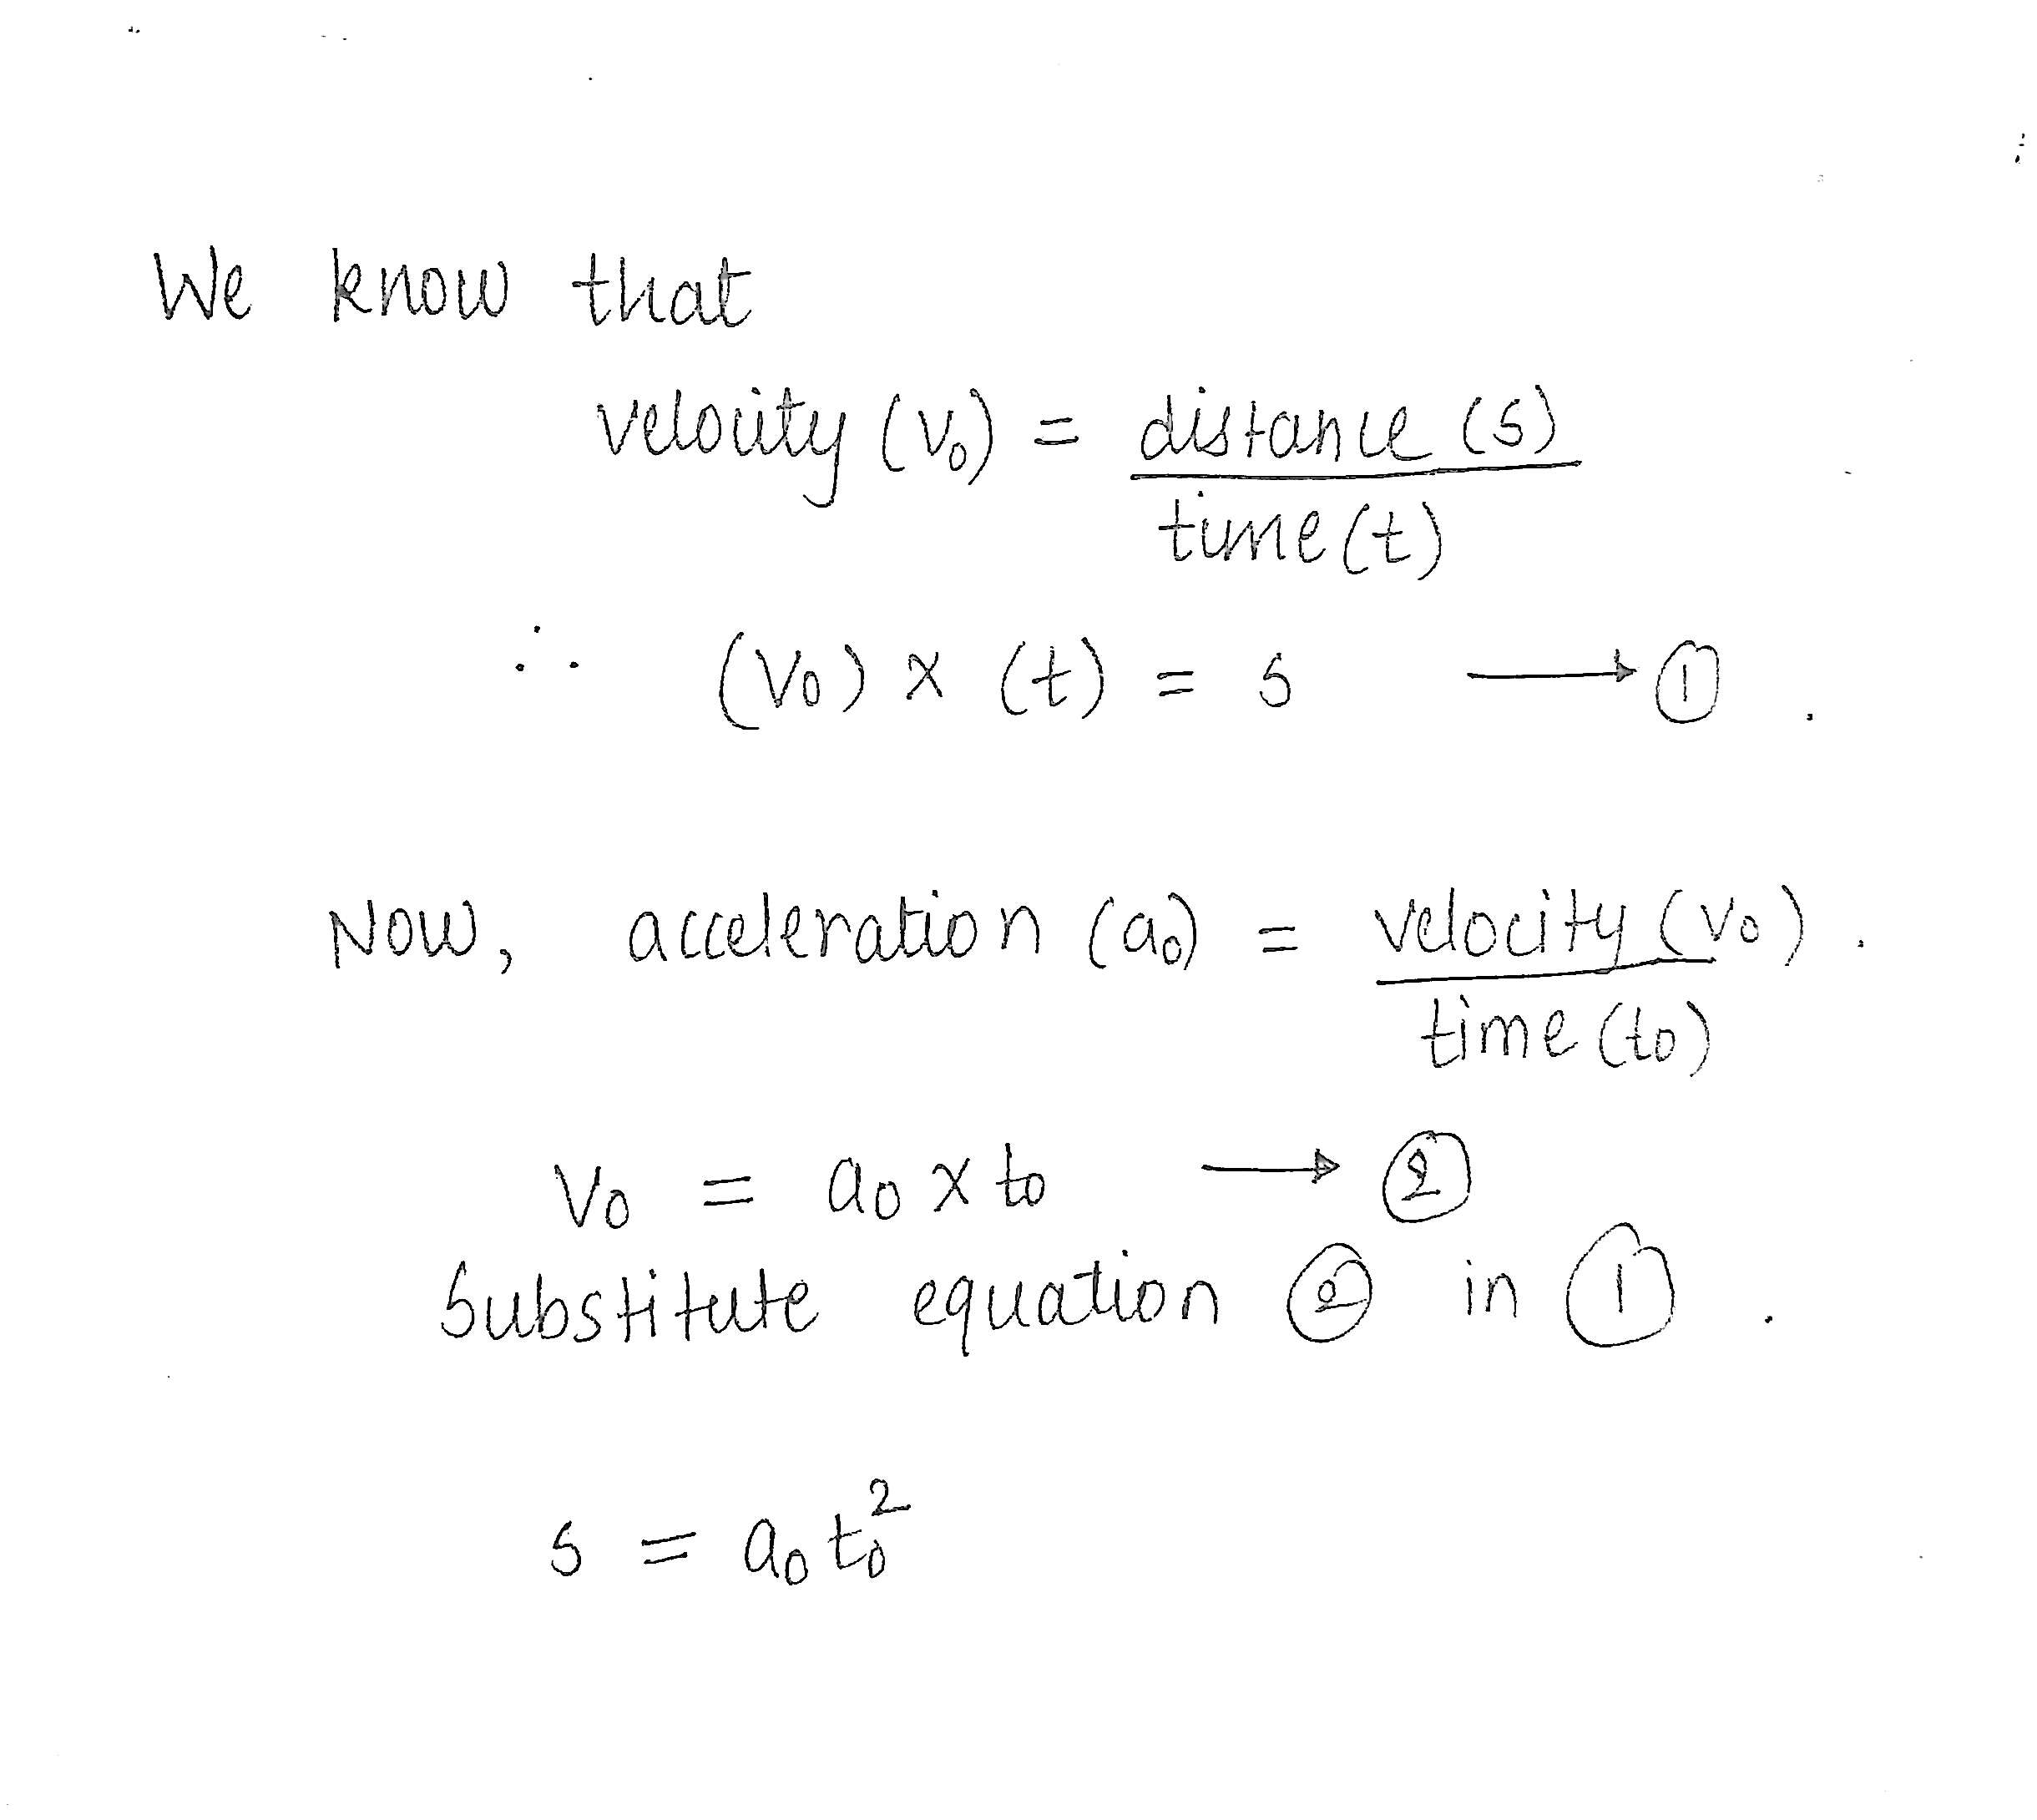 We know that
velocity (v₀) = distance (s)
time (t)
∴ (v₀) x (t) = s → ①
Now, acceleration (a₀) = velocity (v₀)
time (t₀)
v₀ = a₀ x t₀ → ②
Substitute equation ② in ①.
s = a₀ t₀²